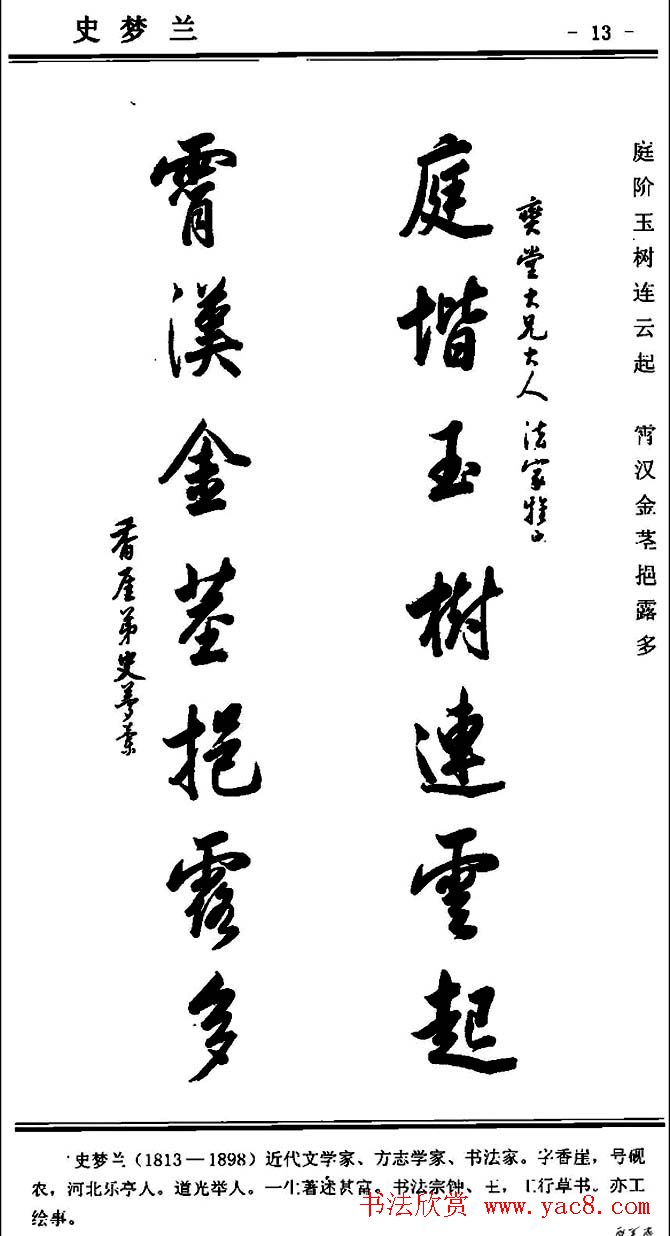 史梦兰
- 13 -
庭阶玉树连云起 霄汉金茎挹露多
奭堂大兄大人 法家雅正
庭堦玉樹連雲起
霄漢金莖挹露多
香厓弟史夢蘭
史梦兰(1813—1898)近代文学家、方志学家、书法家。字香崖,号砚
农,河北乐亭人。道光举人。一生著述甚富。书法宗钟、王,工行草书。亦工
绘事。
书法欣赏 www.yac8.com